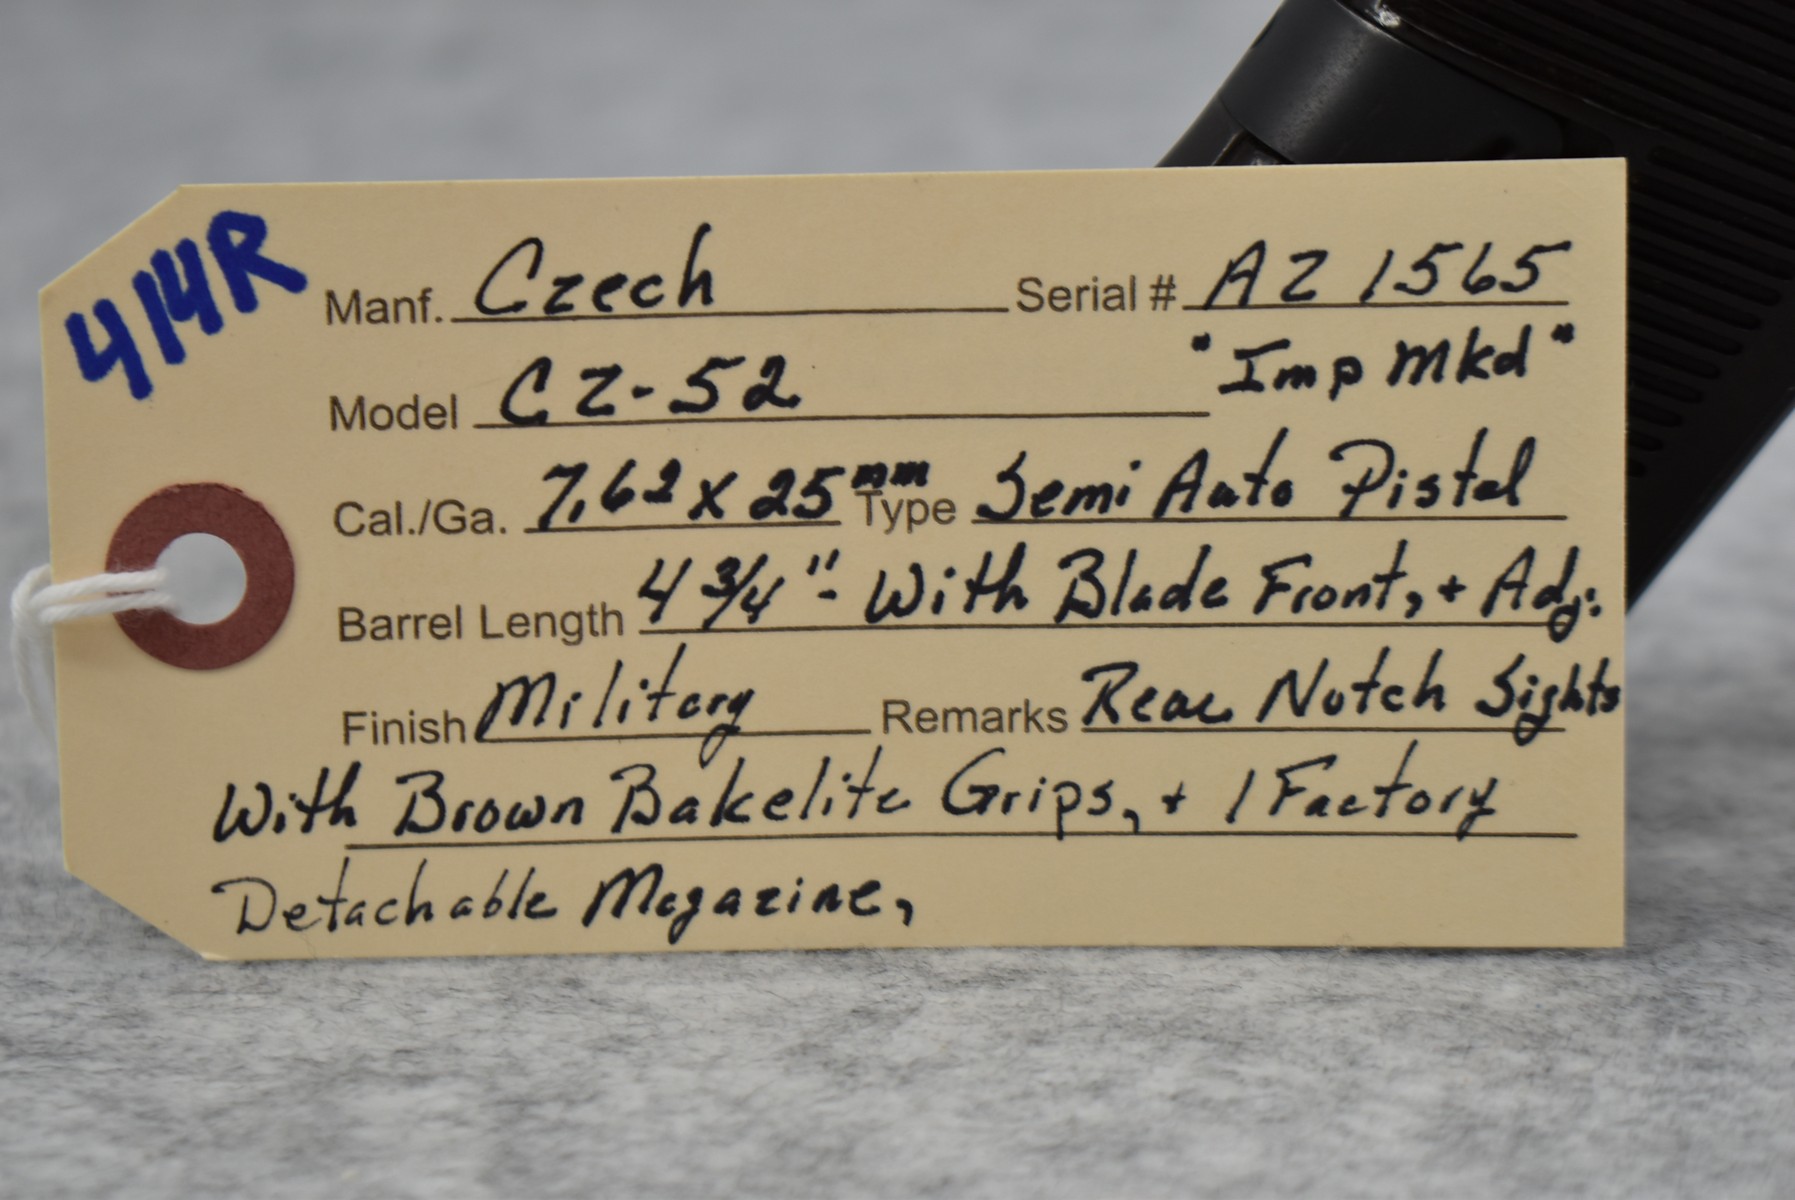 414R
Manf. Czech Serial # AZ 1565
Model CZ-52 "Imp Mkd"
Cal./Ga. 7.62 x 25mm Type Semi Auto Pistol
Barrel Length 4 3/4"- With Blade Front, + Adj.
Finish Military Remarks Rear Notch Sights
With Brown Bakelite Grips, + 1 Factory
Detachable Magazine,